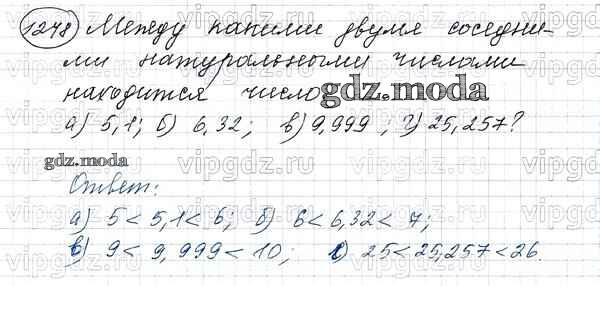 1248 Между какими двумя соседни-
ми натуральными числами
находится число gdz.moda
а) 5,1; б) 6,32; в) 9,999 ; г) 25,257?
gdz.moda
Ответ:
а) 5 < 5,1 < 6; б) 6 < 6,32 < 7;
в) 9 < 9,999 < 10; г) 25 < 25,257 < 26.